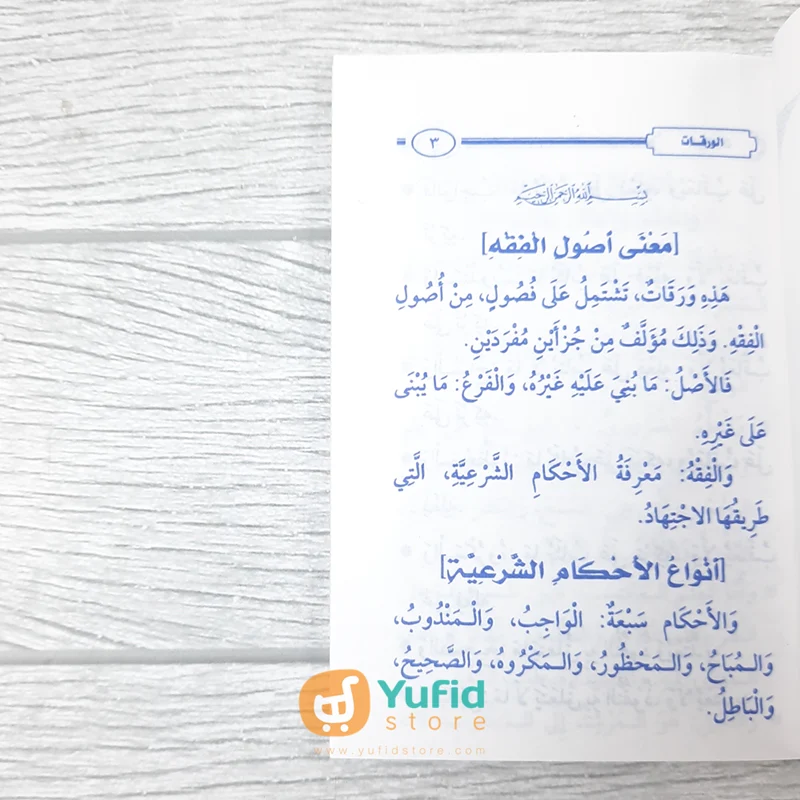 الورقات
٣
بِسْمِ اللَّهِ الرَّحْمَنِ الرَّحِيمِ
[مَعْنَى أُصُولِ الفِقْهِ]
هَذِهِ وَرَقَاتٌ، تَشْتَمِلُ عَلَى فُصُولٍ، مِنْ أُصُولِ
الْفِقْهِ. وَذَلِكَ مُؤَلَّفٌ مِنْ جُزْأَيْنِ مُفْرَدَيْنِ.
فَالأَصْلُ: مَا بُنِيَ عَلَيْهِ غَيْرُهُ، وَالْفَرْعُ: مَا يُبْنَى
عَلَى غَيْرِهِ.
وَالْفِقْهُ: مَعْرِفَةُ الأَحْكَامِ الشَّرْعِيَّةِ، الَّتِي
طَرِيقُهَا الاجْتِهَادُ.
[أَنْوَاعُ الأَحْكَامِ الشَّرْعِيَّةِ]
وَالأَحْكَام سَبْعَةٌ: الْوَاجِبُ، وَالْمَنْدُوبُ،
وَالْمُبَاحُ، وَالْمَحْظُورُ، وَالْمَكْرُوهُ، وَالصَّحِيحُ،
وَالْبَاطِلُ.
Yufid
store
www.yufidstore.com